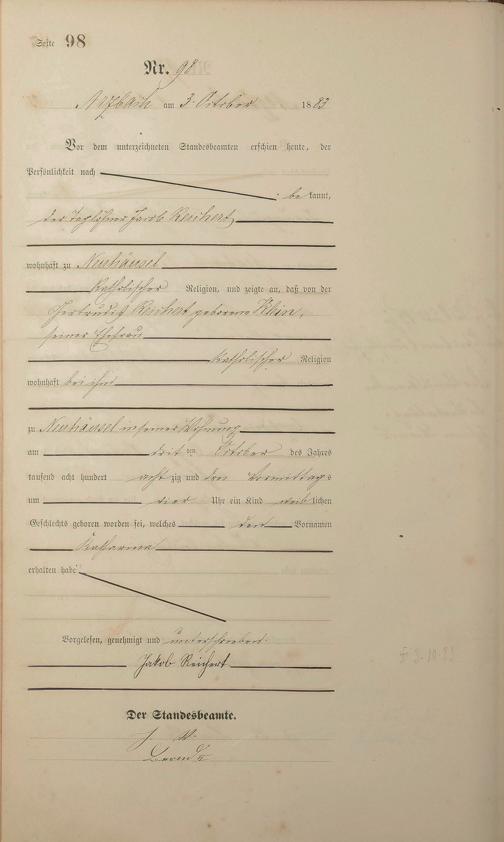 Seite 98
Nr. 98
Arzbach am 3. October 1883
Vor dem unterzeichneten Standesbeamten erschien heute, der
Persönlichkeit nach
be kannt,
der Taglöhner Jacob Reichert
wohnhaft zu Neuhäusel
katholischer Religion, und zeigte an, daß von der
Gertrudis Reichert geborene Klein,
seiner Ehefrau
katholischer Religion
wohnhaft bei ihm
zu Neuhäusel in seiner Wohnung
am ten October des Jahres
tausend acht hundert acht zig und drei Vormittags
um vier Uhr ein Kind weib lichen
Geschlechts geboren worden sei, welches den Vornamen
Katharina
erhalten habe
Vorgelesen, genehmigt und unterschrieben
Jakob Reichert
Der Standesbeamte.